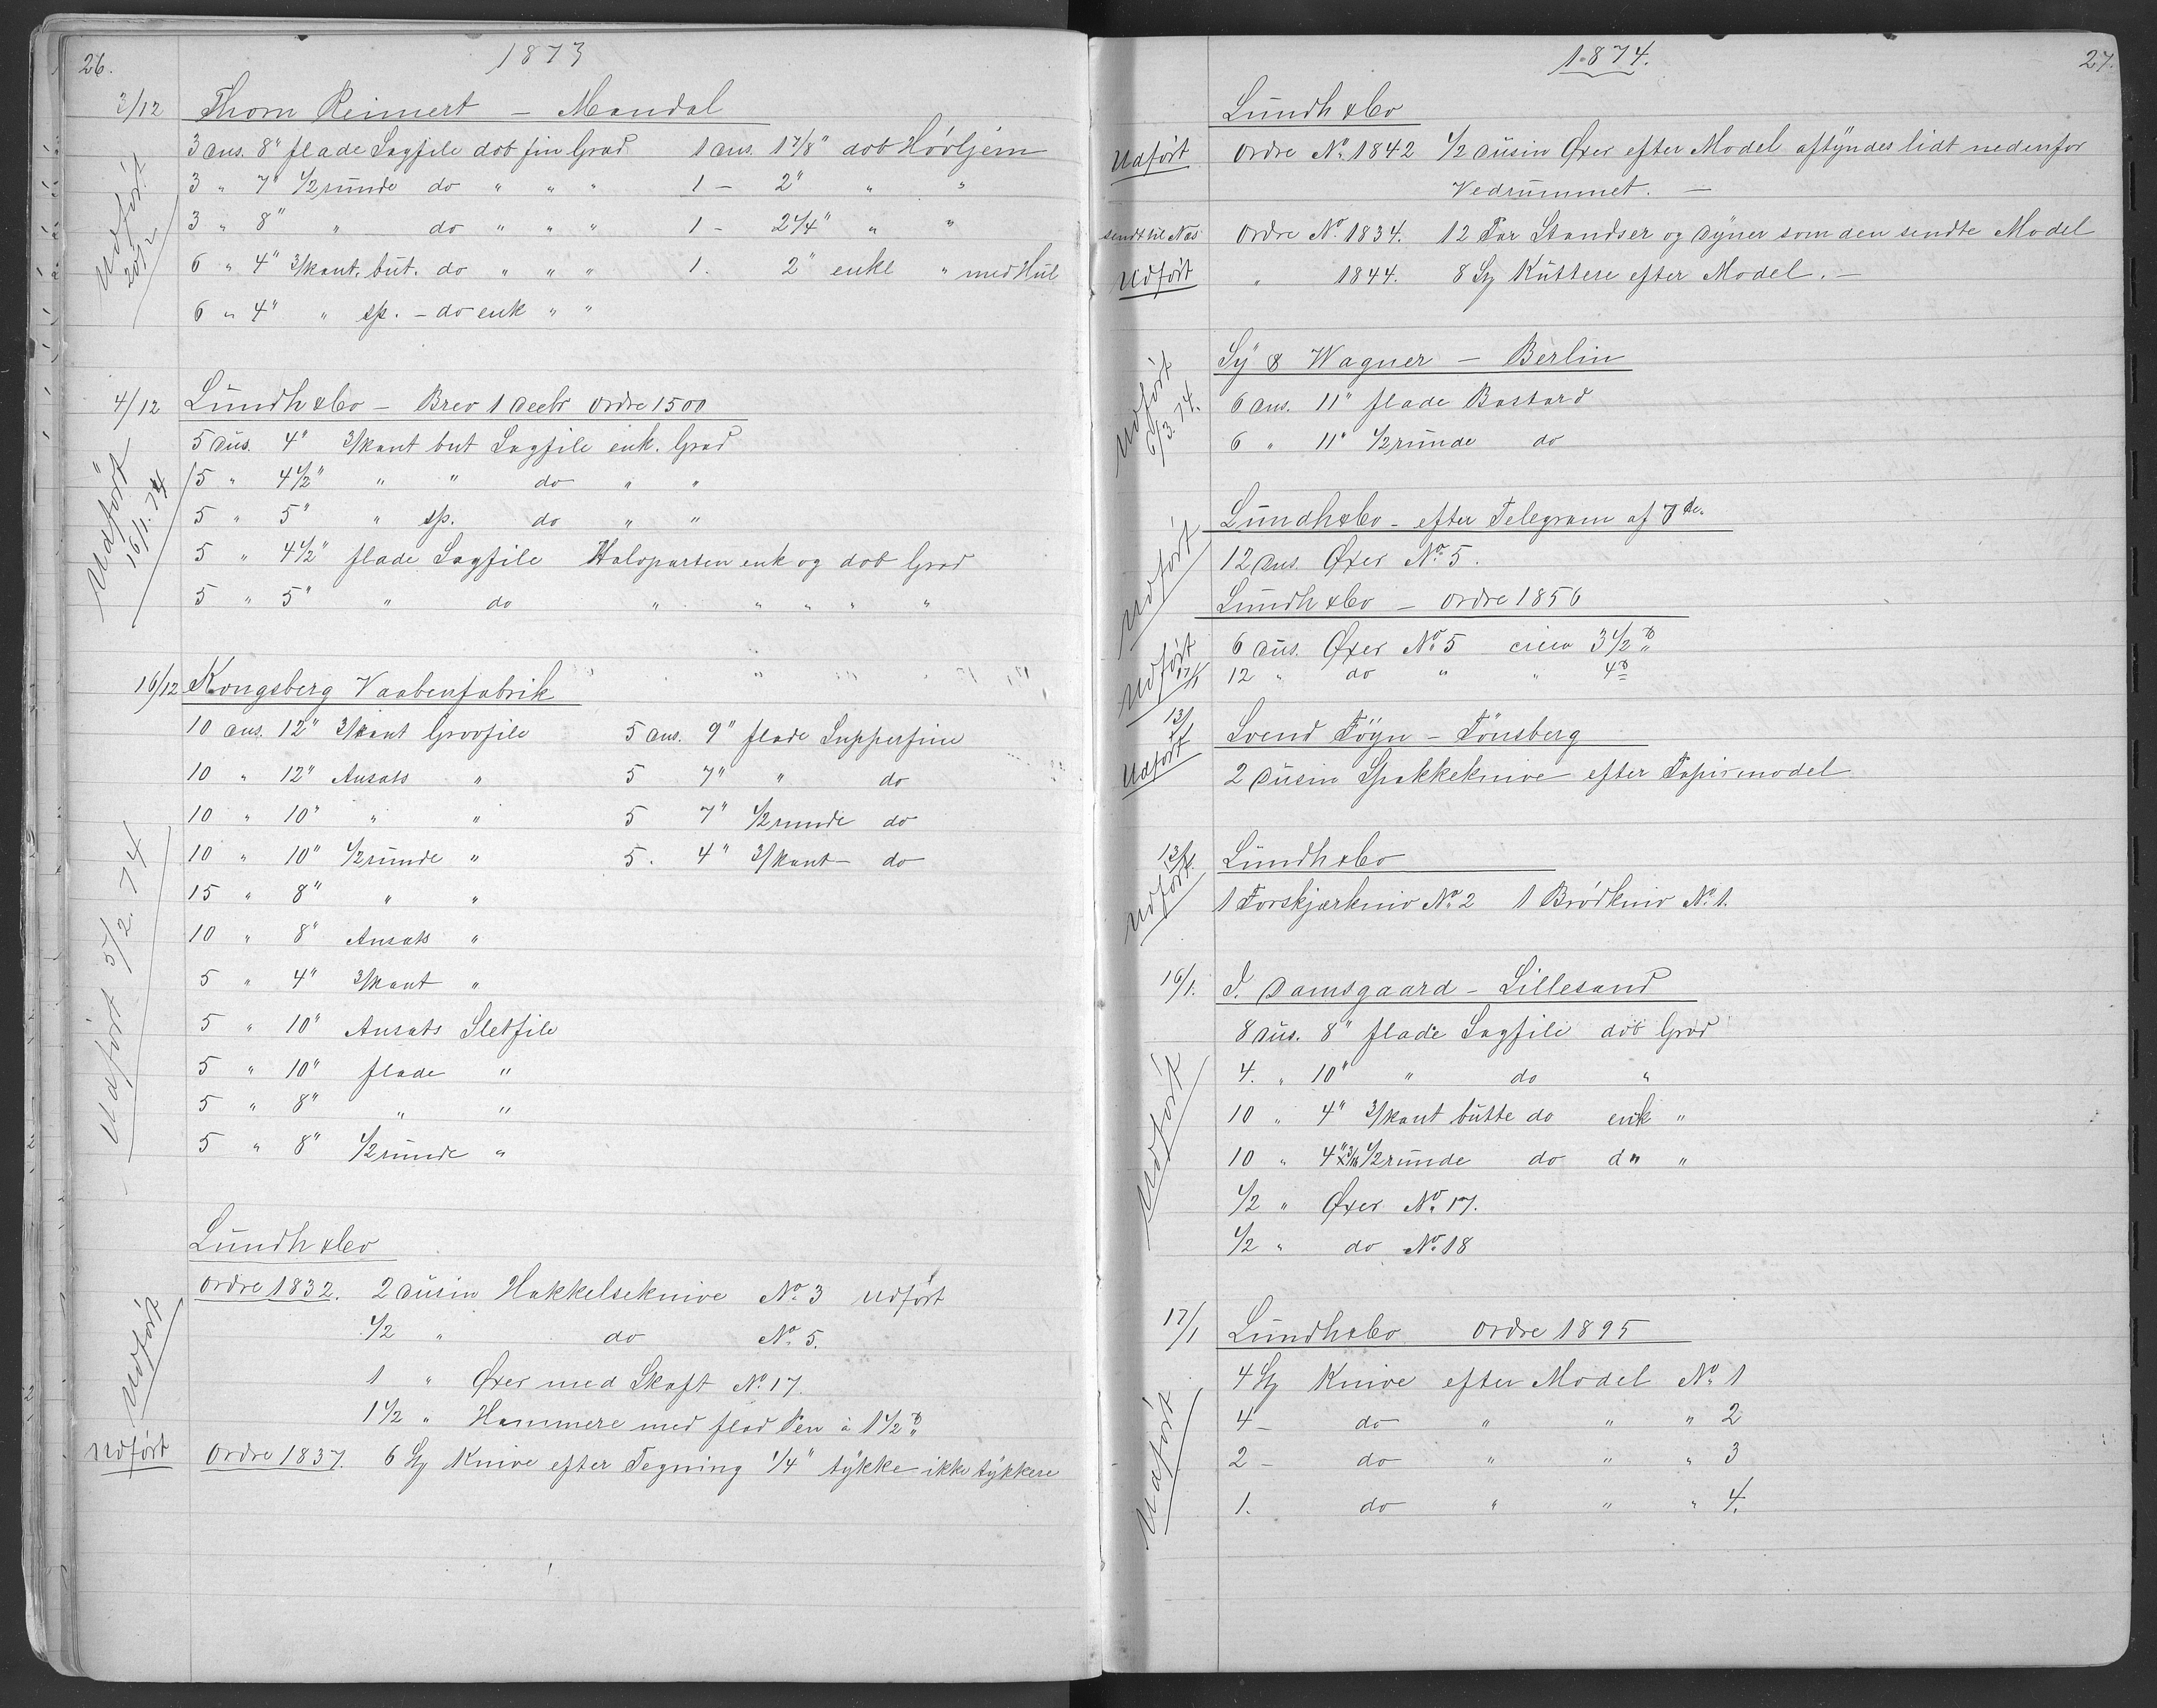 26.
1873
3/12 Thorn Reimert – Mandal
3 Dus. 8" flade Sagfile dob fin Grad 1 Dus. 1 7/8" dob Høvljern
3 " 7" 1/2 runde do " " " 1 – 2" " "
3 " 8" " do " " " 1 – 2 1/4" " "
6 " 4" 3/kant. but. do " " " 1. 2" enkl " med Hul
6 " 4" " sp. – do enk " "
Udført 20/2
4/12 Lundh & Co – Brev 1 Decbr Ordre 1500
5 Dus. 4" 3/kant but Sagfile enk. Grad
15 " 4 1/2" " " do " "
5 " 5" " sp. do " "
5 " 4 1/2" flade Sagfile Halvparten enk og dob Grad
5 " 5" " do " " " " "
Udført 16/1. 74
16/12 Kongsberg Vaabenfabrik
10 Dus. 12" 3/kant Grovfile 5 Dus. 9" flade Supperfine
10 " 12" Ansats " 5 7" " do
10 " 10" " " 5 7" 1/2 runde do
10 " 10" 1/2 runde " 5. 4" 3/kant – do
15 " 8" " "
10 " 8" Ansats "
5 " 4" 3/kant "
5 " 10" Ansats Sletfile
5 " 10" flade "
5 " 8" " "
5 " 8" 1/2 runde "
Udført 5/2. 74
Lundh & Co
Ordre 1832. 2 Dusin Hakkelseknive No. 3 Udført
1/2 " do No. 5.
1 " Øxer med Skaft No. 17.
1 1/2 " Hammere med flad Pen à 1 1/2 ℔
Udført
Udført Ordre 1837. 6 St Knive efter Tegning 1/4" tykke ikke tykkere
1874.
27.
Lundh & Co
Udført Ordre No. 1842 1/2 Dusin Øxer efter Model aftyndes lidt nedenfor
Vedrummet. –
sendt til Næs Ordre No. 1834. 12 Par Standser og Dyner som den sendte Model
Udført " 1844. 8 St Kuttere efter Model. –
Sy & Wagner – Berlin
6 Dus. 11" flade Bastard
6 " 11" 1/2 runde do
Udført 6/3. 74.
Lundh & Co – efter Telegram af 7de.
12 Dus. Øxer No. 5.
Udført
Lundh & Co – Ordre 1856
6 Dus. Øxer No. 5 circa 3 1/2 ℔
12 " do " " 4 ℔
Udført 17/1
13/1 Svend Föyn – Tönsberg
2 Dusin Spækkeknive efter Papirmodel
Udført
13/1. Lundh & Co
1 Forskjærkniv No. 2 1 Brödkniv No. 1.
Udført
16/1. J. Damsgaard – Lillesand
8 Dus. 8" flade Sagfile dob Grad
4. " 10" " do "
10 " 4" 3/kant butte do enk "
10 " 4" x 3/16 1/2 runde do do "
1/2 " Øxer No. 17.
1/2 " do No. 18
Udført
17/1 Lundh & Co Ordre 1895
4 St Knive efter Model No. 1
4 – do " " " 2
2 – do " " " 3
1. do " " " 4.
Udført